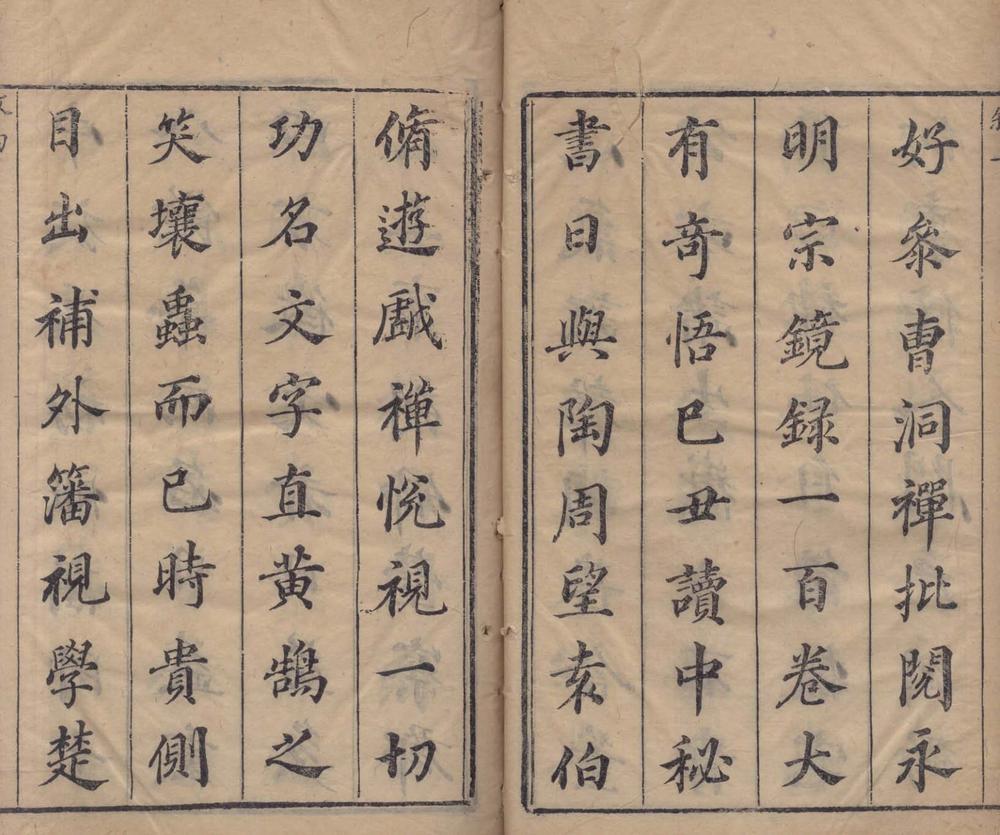 好參曹洞禪批閱永
明宗鏡録一百卷大
有奇悟已丑讀中秘
書日與陶周望袁伯
脩遊戲禪悅視一切
功名文字直黄鵠之
笑壤蟲而已時貴側
目出補外籓視學楚